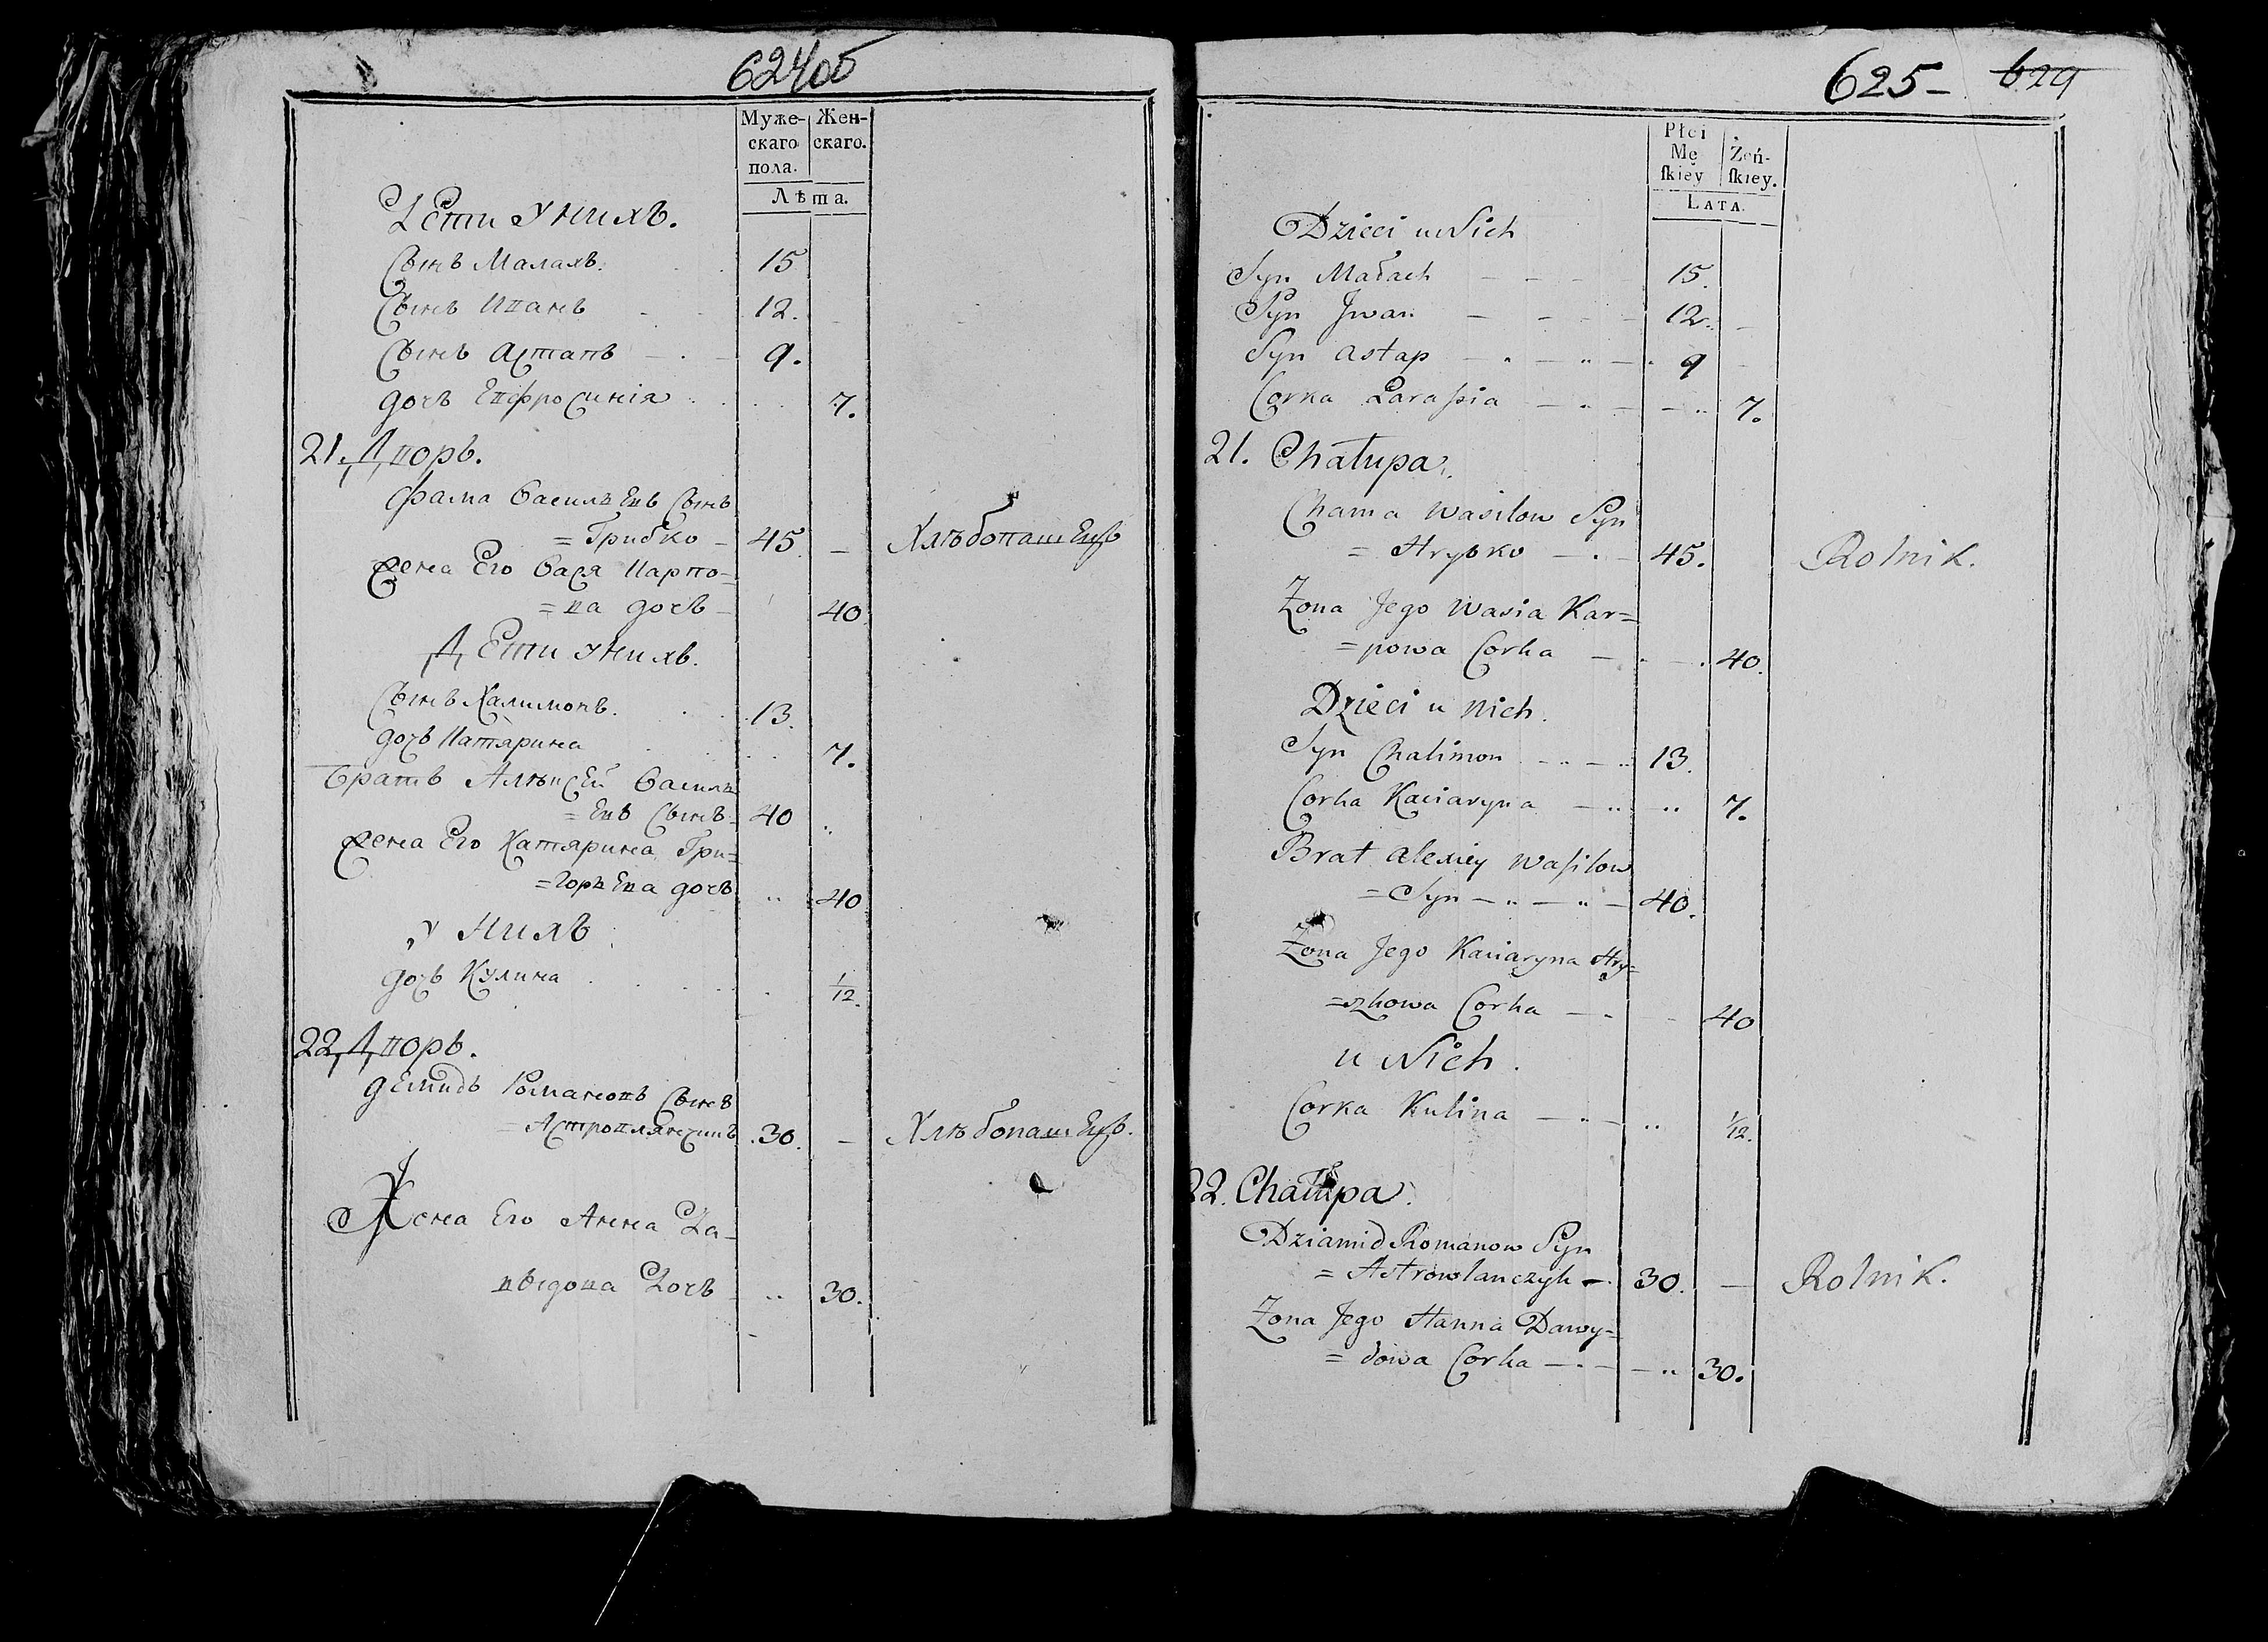 624об
Муже-
скаго
пола.
Жен-
скаго.
Лѣта.
Дети унихъ.
Сынъ Малахъ. 15
Сынъ Иванъ 12.
Сынъ Астапъ 9.
дочъ Евфросинія 7.
21. Дворъ.
Фама Васильевъ Сынъ
=Грибко 45. — Хлѣбопашецъ
Жена Его Вася Карпо=
=ва дочъ 40
Дети унихъ.
Сынъ Халимонъ. 13.
дочъ Катярина 7.
Братъ Алѣксей Василь
=евъ Сынъ 40
Жена Его Катярина Гри=
=горьева дочъ 40
у нихъ
дочъ Кулина 1/12.
22. Дворъ.
Демидъ Романовъ Сынъ
=Астровлянчикъ 30. — Хлѣбопашецъ.
Жена Его Анна Да-
выдова Дочъ 30.
625- 629
Płci
Mę
ſkiey
Żeń-
ſkiey.
LATA.
Dzieci u Nich
Syn Małach 15.
Syn Jwan 12.
Syn Astap 9
Corka Paraſsia 7.
21. Chałupa.
Chama Wasilow Syn
= Hrybko 45. Rolnik.
Żona Jego Wasia Kar=
=powa Corka 40.
Dzieci u Nich.
Syn Chalimon 13.
Corka Kaciaryna 7.
Brat Alexiey Waſilow
=Syn 40.
Żona Jego Kaciaryna Hry=
=szkowa Corka 40
u Nich.
Corka Kulina 1/12.
22. Chałupa.
Dziamid Romanow Syn
= Astrowlanczyk 30. — Rolnik.
Żona Jego Hanna Dawy=
= dowa Corka 30.